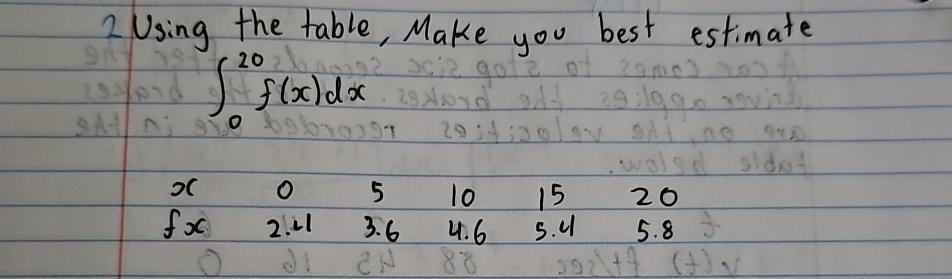 2 Using the table, Make you best estimate
∫₀²⁰ f(x)dx
x 0 5 10 15 20
fx 2.4 3.6 4.6 5.4 5.8